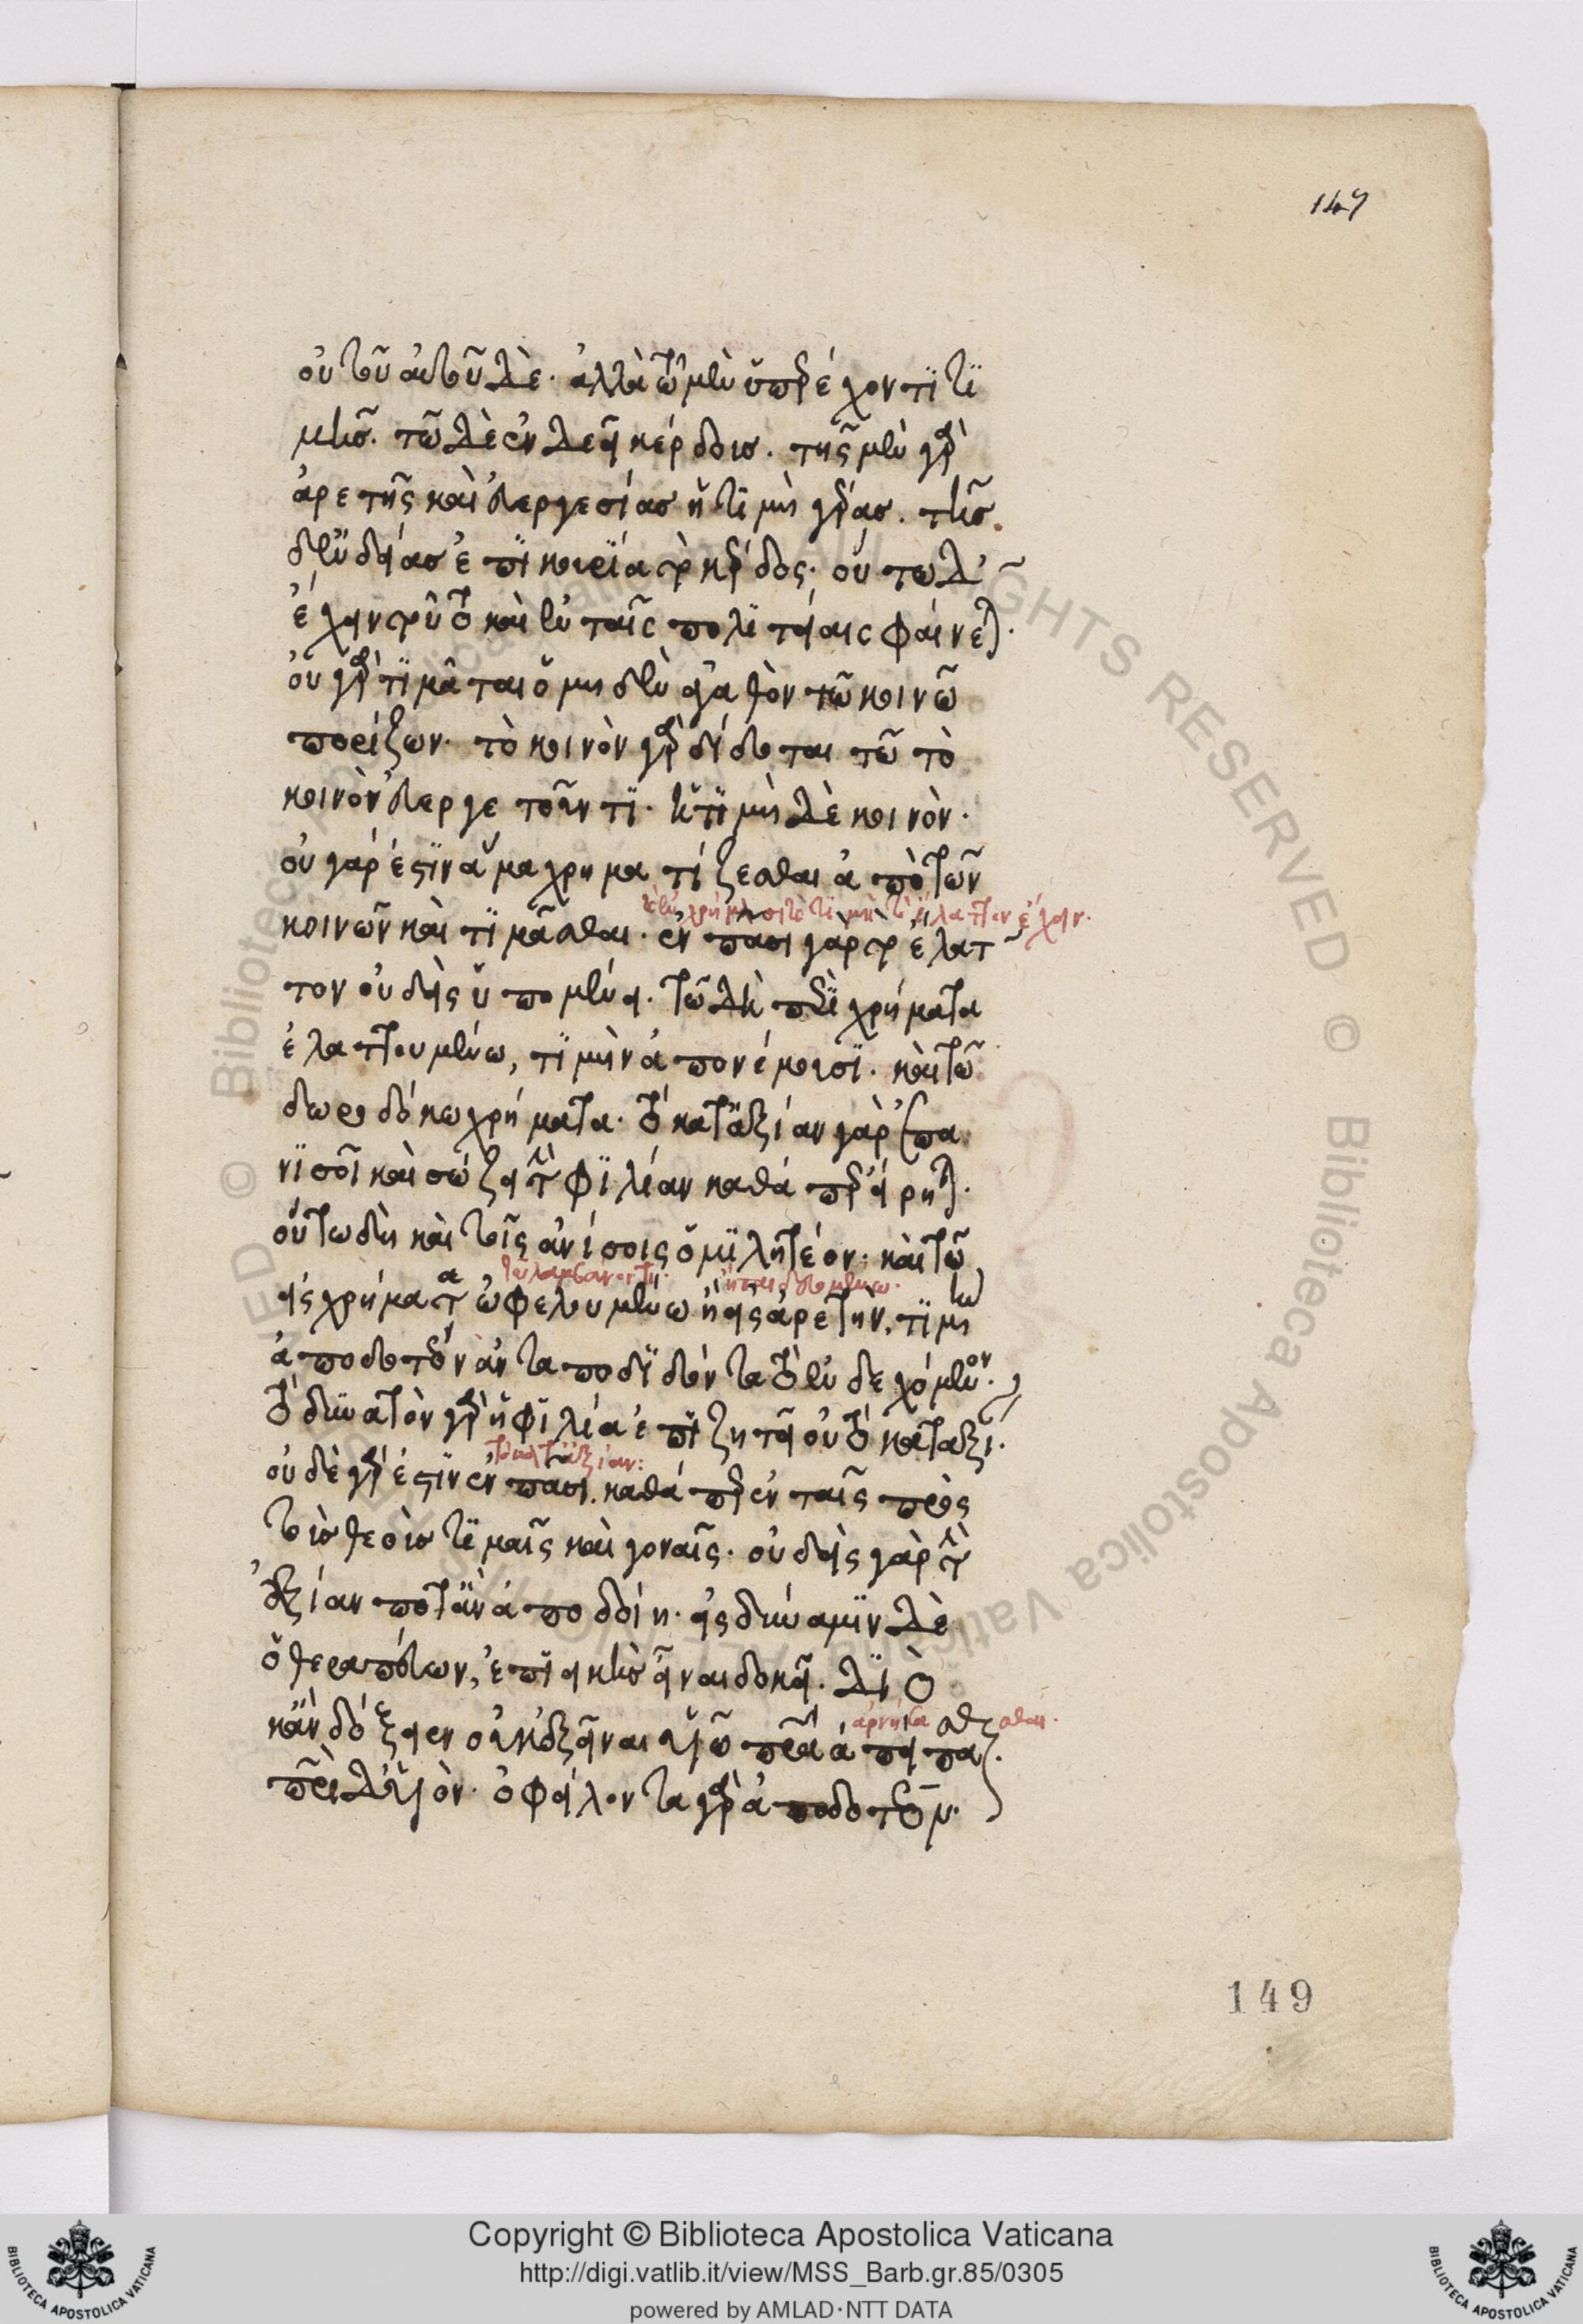 147
οὐ τοῦ αὐτοῦ δὲ· ἀλλὰ τῷ μὲν ὑπερέχοντι τι
μῆς. τῷ δὲ ἐνδεεῖ κέρδους. τῆς μὲν γὰρ
ἀρετῆς καὶ εὐεργεσίας ἡ τιμὴ γέρας. τῆς
δ' ἐνδείας ἐπικουρία τὸ κέρδος· οὕτω δ'
ἔχειν τοῦτο καὶ ἐν ταῖς πολιτείαις φαίνεται·
οὐ γὰρ τιμᾶται ὁ μηδὲν ἀγαθὸν τῷ κοινῷ
πορίζων· τὸ κοινὸν γὰρ δίδοται τῷ τὸ
κοινὸν εὐεργετοῦντι· ἡ τιμὴ δὲ κοινόν·
οὐ γάρ ἐστιν ἅμα χρηματίζεσθαι ἀπὸ τῶν
κοινῶν καὶ τιμᾶσθαι· ἐν πᾶσι γὰρ τὸ ἔλατ
τον οὐδεὶς ὑπομένει· τῷ δὴ περὶ χρήματα
ἐλαττουμένω, τιμὴν ἀπονέμουσι· καὶ τῷ
δωροδόκω χρήματα· τὸ κατ' ἀξίαν γὰρ ἐπα
νισοῖ καὶ σώζει τὴν φιλίαν καθάπερ εἴρηται·
οὕτω δὴ καὶ τοῖς ἀνίσοις ὁμιλητέον· καὶ τῷ
εἰς χρήματα ὠφελουμένω ἢ εἰς ἀρετὴν, τιμὴν
ἀποδοτέον ἀνταποδιδόντα τὸ ἐνδεχόμενον·
τὸ δυνατὸν γὰρ ἡ φιλία ἐπιζητεῖ οὐ τὸ κατ' ἀξί·
τὸ κατ' ἀξίαν:
οὐδὲ γὰρ ἔστιν ἐν πᾶσι. καθάπερ ἐν ταῖς πρὸς
τοὺς θεοὺς τιμαῖς καὶ γονεῖς· οὐδεὶς γὰρ τὴν
ἀξίαν ποτ' ἂν ἀποδοίη· εἰς δύναμιν δὲ
ὁ θεραπεύων, ἐπιεικὴς εἶναι δοκεῖ. διὸ
κἂν δόξειεν οὐκ ἐξεῖναι υἱῷ πατέρα ἀπείπασθαι
πατρὶ δ' υἱόν· ὀφείλοντα γὰρ ἀποδοτέον·
149
Copyright © Biblioteca Apostolica Vaticana
http://digi.vatlib.it/view/MSS_Barb.gr.85/0305
powered by AMLAD·NTT DATA
BIBLIOTECA APOSTOLICA VATICANA